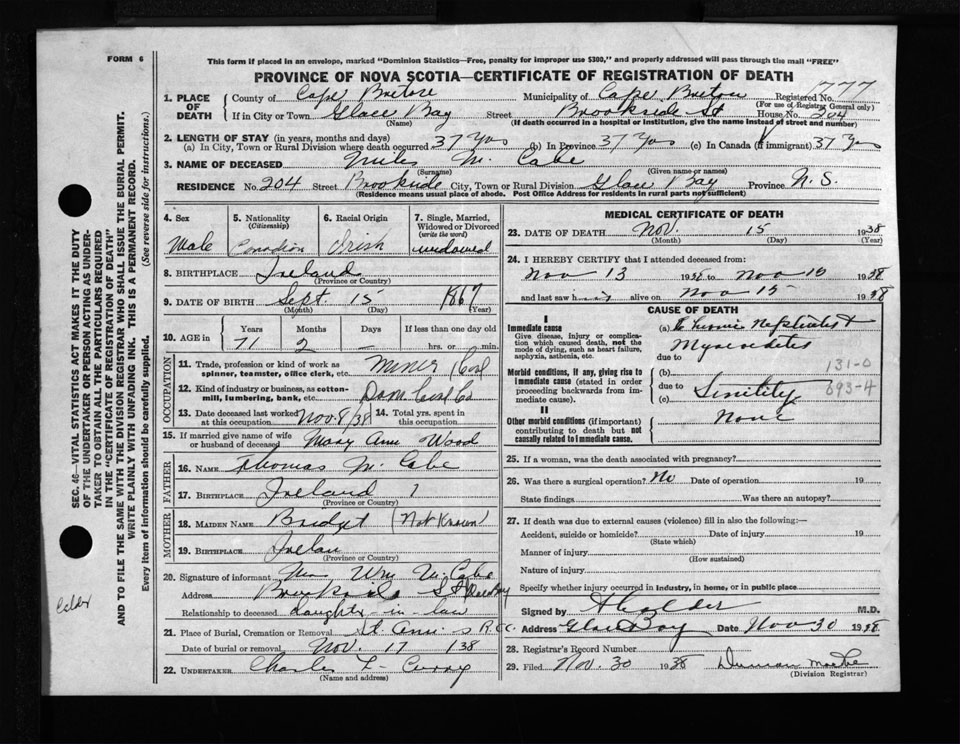 FORM 6
This form if placed in an envelope, marked "Dominion Statistics—Free, penalty for improper use $300," and properly addressed will pass through the mail "FREE"
PROVINCE OF NOVA SCOTIA—CERTIFICATE OF REGISTRATION OF DEATH
1. PLACE OF DEATH County of Cape Breton Municipality of Cape Breton Registered No. 777
(For use of Registrar General only)
If in City or Town Glace Bay Street Brookside St House No. 204
(Name) (If death occurred in a hospital or institution, give the name instead of street and number)
2. LENGTH OF STAY (in years, months and days)
(a) In City, Town or Rural Division where death occurred 37 Yrs (b) In Province 37 Yrs (c) In Canada (if immigrant) 37 Yrs
3. NAME OF DECEASED Miles Mc Cabe
(Surname) (Given name or names)
RESIDENCE No. 204 Street Brookside City, Town or Rural Division Glace Bay Province N. S.
(Residence means usual place of abode. Post Office Address for residents in rural parts not sufficient)
4. Sex Male
5. Nationality (Citizenship) Canadian
6. Racial Origin Irish
7. Single, Married, Widowed or Divorced (write the word) widowed
8. BIRTHPLACE Ireland
(Province or Country)
9. DATE OF BIRTH Sept. 15 1867
(Month) (Day) (Year)
10. AGE in Years Months Days If less than one day old
71 2 — hrs. or min.
OCCUPATION
11. Trade, profession or kind of work as spinner, teamster, office clerk, etc. Miner Coal
12. Kind of industry or business, as cotton-mill, lumbering, bank, etc. Dom. Coal Co
13. Date deceased last worked at this occupation Nov. 8/38
14. Total yrs. spent in this occupation
15. If married give name of wife or husband of deceased Mary Ann Wood
FATHER
16. NAME Thomas Mc Cabe
17. BIRTHPLACE Ireland
(Province or Country)
MOTHER
18. MAIDEN NAME Bridget (Not Known)
19. BIRTHPLACE Irelan
(Province or Country)
20. Signature of informant Mrs Wm Mc Cabe
Address Brookside St Glace Bay
Relationship to deceased daughter-in-law
21. Place of Burial, Cremation or Removal St. Ann's R.C.
Date of burial or removal Nov. 17 1938
22. UNDERTAKER Charles F. Curry
(Name and address)
MEDICAL CERTIFICATE OF DEATH
23. DATE OF DEATH Nov. 15 1938
(Month) (Day) (Year)
24. I HEREBY CERTIFY that I attended deceased from:
Nov 13 1938 to Nov 15 1938
and last saw him alive on Nov 15 1938
CAUSE OF DEATH
I
Immediate cause
Give disease, injury or complication which caused death, not the mode of dying, such as heart failure, asphyxia, asthenia, etc.
(a) Chronic Nephritis &
Myocarditis
due to
Morbid conditions, if any, giving rise to immediate cause (stated in order proceeding backwards from immediate cause).
(b) 131-0
due to 093-4
(c) Senility
II
Other morbid conditions (if important) contributing to death but not causally related to immediate cause.
None
25. If a woman, was the death associated with pregnancy?
26. Was there a surgical operation? No Date of operation 19
State findings Was there an autopsy?
27. If death was due to external causes (violence) fill in also the following:—
Accident, suicide or homicide? Date of injury 19
(State which)
Manner of injury
(How sustained)
Nature of injury
Specify whether injury occurred in industry, in home, or in public place
Signed by A Calder M.D.
Address Glace Bay Date Nov 30 1938
28. Registrar's Record Number
29. Filed Nov. 30 1938 Duncan
(Division Registrar)
SEC. 46—VITAL STATISTICS ACT MAKES IT THE DUTY
OF THE UNDERTAKER OR PERSON ACTING AS UNDER-
TAKER TO OBTAIN ALL THE PARTICULARS REQUIRED
IN THE "CERTIFICATE OF REGISTRATION OF DEATH"
AND TO FILE THE SAME WITH THE DIVISION REGISTRAR WHO SHALL ISSUE THE BURIAL PERMIT.
WRITE PLAINLY WITH UNFADING INK. THIS IS A PERMANENT RECORD.
Every item of information should be carefully supplied. (See reverse side for instructions.)
Calder